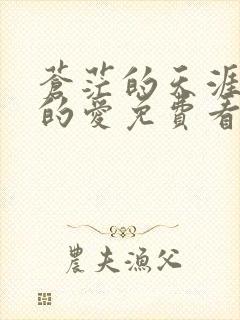 蒼茫的天涯
的愛免費看
農夫漁父